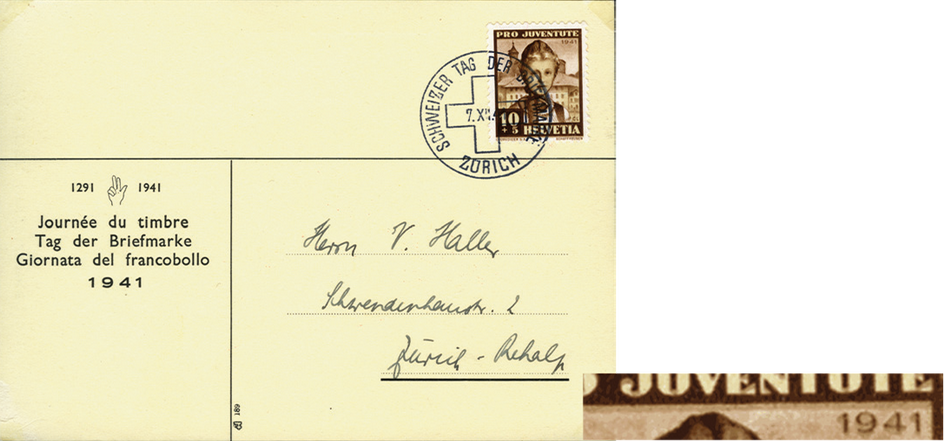 PRO JUVENTUTE
1941
10
+5 HELVETIA
SCHWEIZER TAG DER BRIEFMARKE
7.XII.
ZÜRICH
1291 1941
Journée du timbre
Tag der Briefmarke
Giornata del francobollo
1941
Herrn V. Haller
2
Zürich - Rehalp
681
O JUVENTUTE
1941